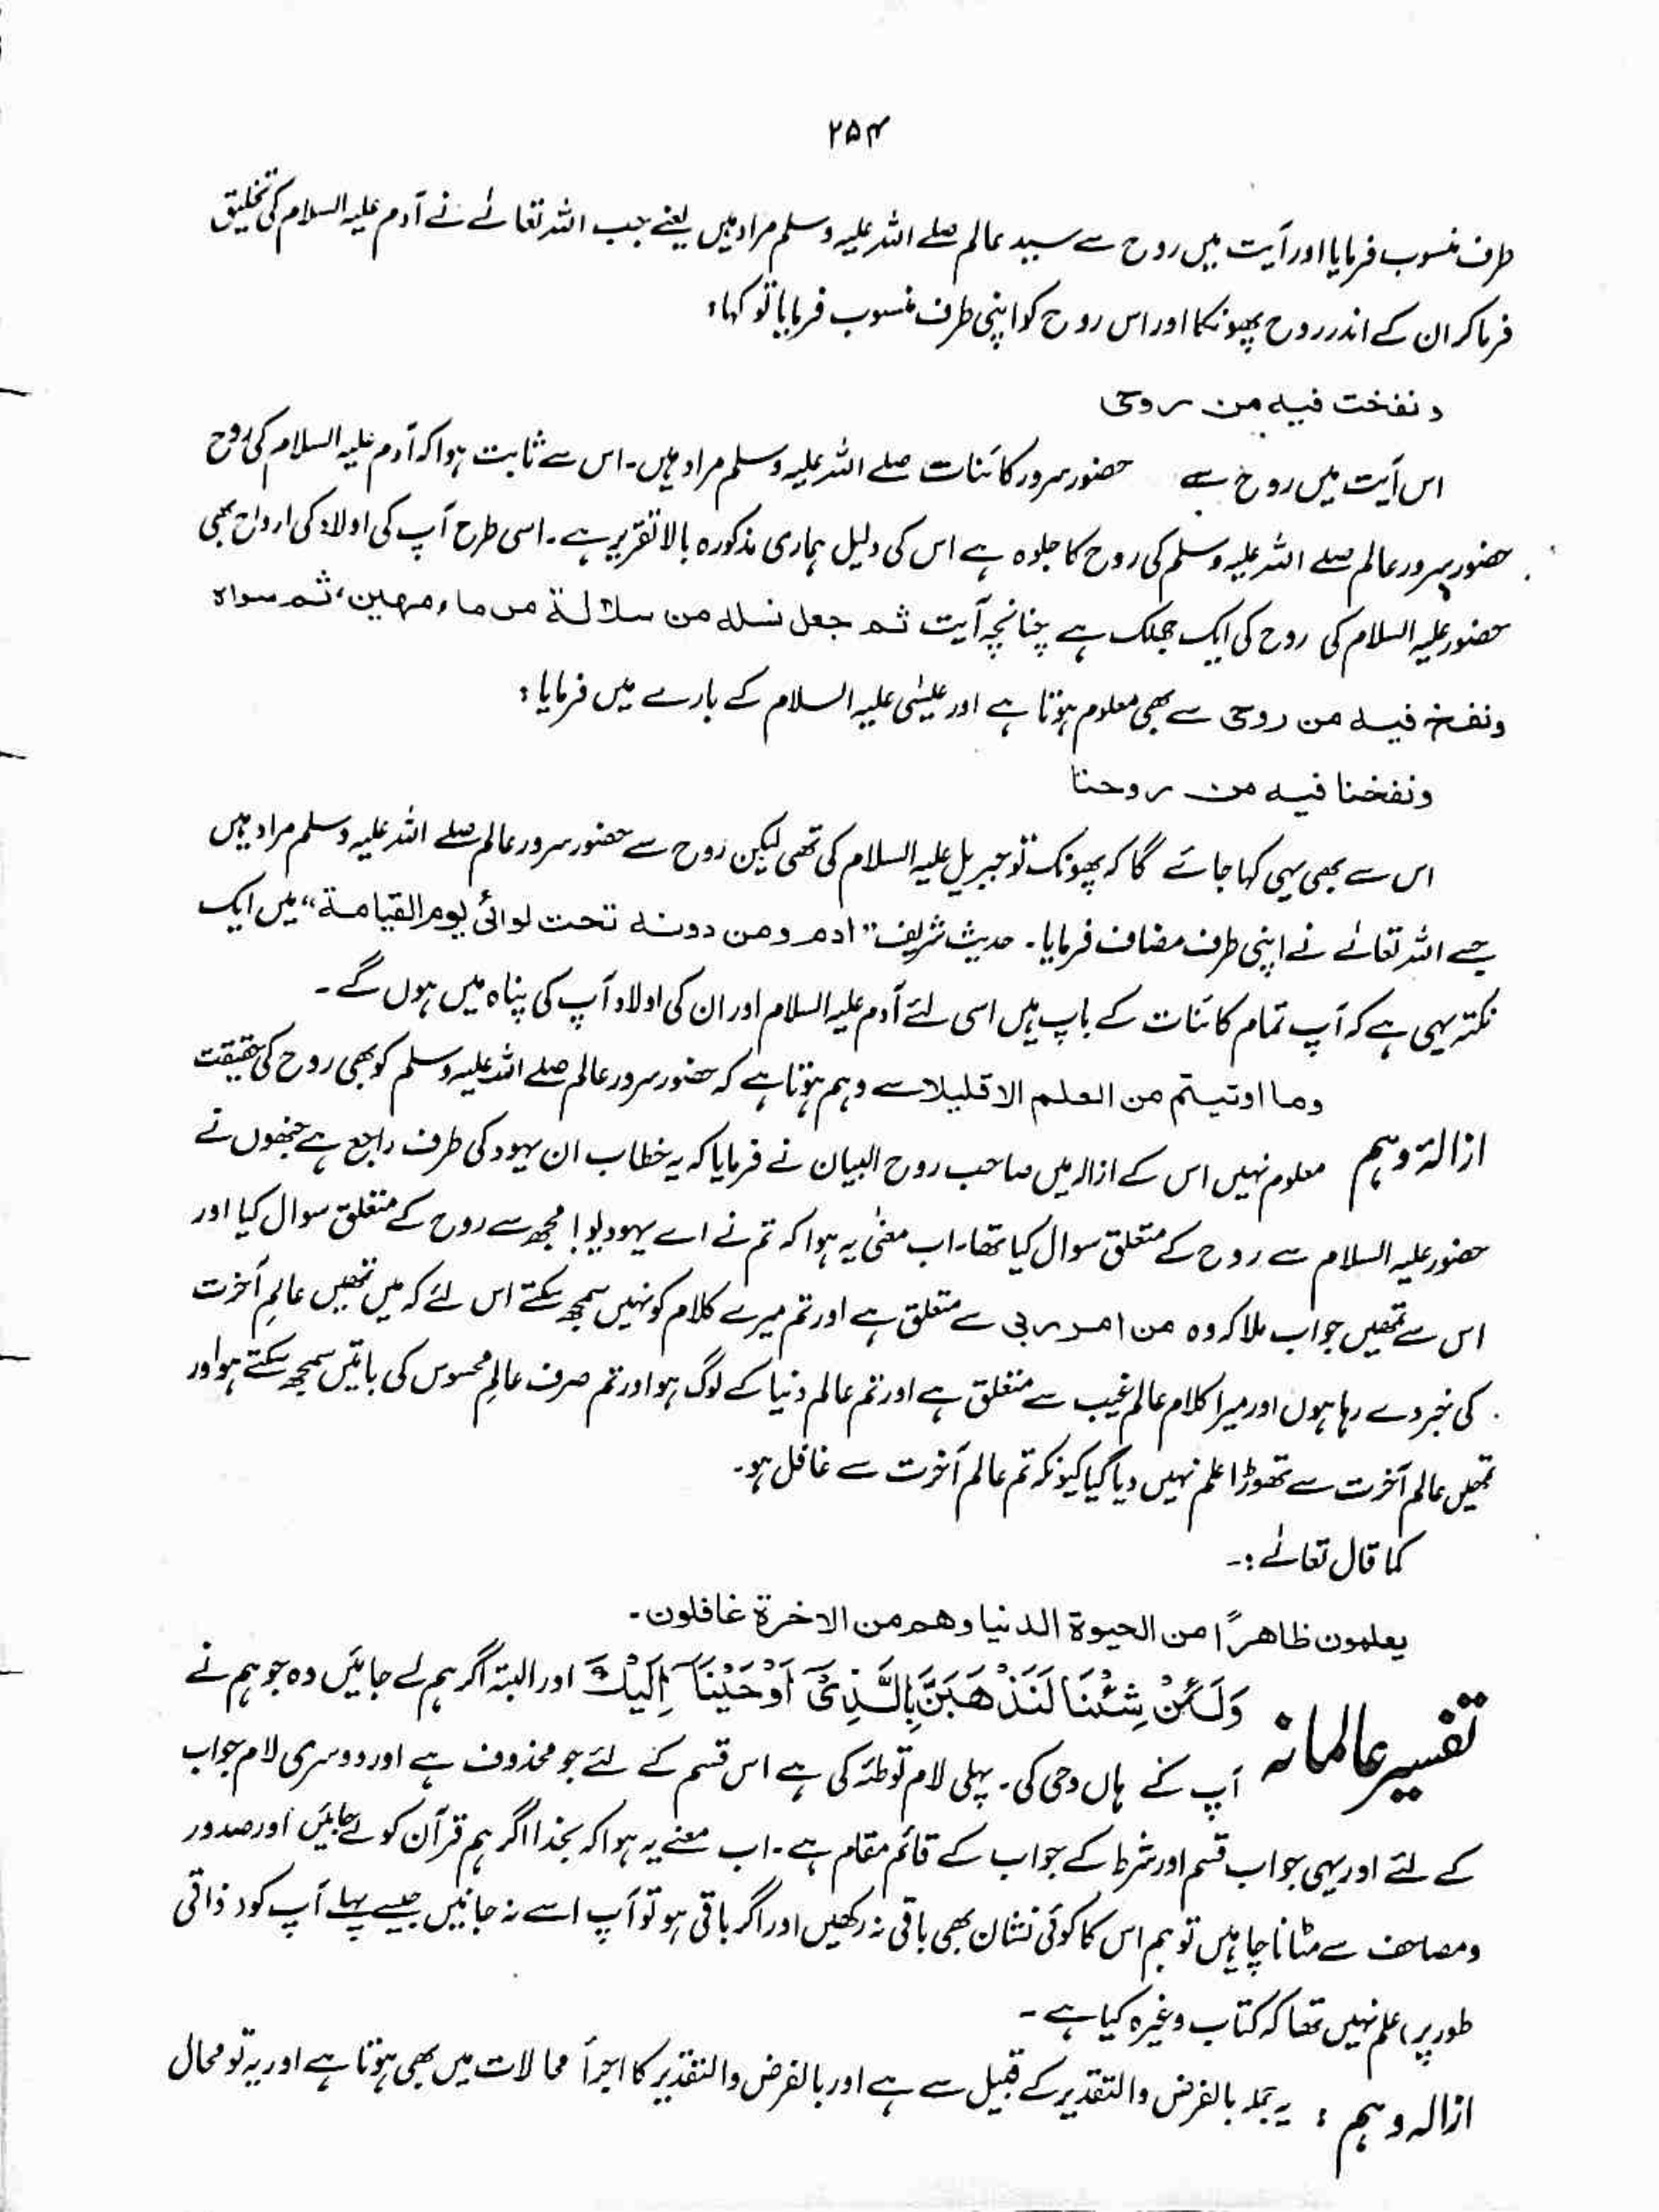 ۲۵۴
طرف منسوب فرمایا اور آیت میں روح سے سید عالم صلے اللہ علیہ وسلم مراد ہیں یعنے جب اللہ تعالےٰ نے آدم علیہ السلام کی تخلیق
فرما کر ان کے اندر روح پھونکا اور اس روح کو اپنی طرف منسوب فرمایا تو کہا:
و نفخت فیہ من روحی
اس آیت میں روح سے حضور سرور کائنات صلے اللہ علیہ وسلم مراد ہیں۔ اس سے ثابت ہوا کہ آدم علیہ السلام کی روح
حضور سرور عالم صلے اللہ علیہ وسلم کی روح کا جلوہ ہے اس کی دلیل ہماری مذکورہ بالا تقریر ہے۔ اسی طرح آپ کی اولاد کی ارواح بھی
حضور علیہ السلام کی روح کی ایک جھلک ہے چنانچہ آیت ثم جعل نسلہ من سلالۃ من ماء مھین، ثم سواہ
ونفخ فیہ من روحی سے بھی معلوم ہوتا ہے اور عیسٰی علیہ السلام کے بارے میں فرمایا:
ونفخنا فیہ من روحنا
اس سے بھی یہی کہا جائے گا کہ پھونک تو جبریل علیہ السلام کی تھی لیکن روح سے حضور سرور عالم صلے اللہ علیہ وسلم مراد ہیں
جسے اللہ تعالےٰ نے اپنی طرف مضاف فرمایا۔ حدیث شریف "ادم ومن دونہ تحت لوائی یوم القیامۃ" میں ایک
نکتہ یہی ہے کہ آپ تمام کائنات کے باپ ہیں اسی لئے آدم علیہ السلام اور ان کی اولاد آپ کی پناہ میں ہوں گے۔
وما اوتیتم من العلم الا قلیلا سے وہم ہوتا ہے کہ حضور سرور عالم صلے اللہ علیہ وسلم کو بھی روح کی حقیقت
ازالۂ وہم معلوم نہیں اس کے ازالہ میں صاحب روح البیان نے فرمایا کہ یہ خطاب ان یہود کی طرف راجع ہے جنھوں نے
حضور علیہ السلام سے روح کے متعلق سوال کیا تھا۔ اب معنٰی یہ ہوا کہ تم نے اے یہودیو! مجھ سے روح کے متعلق سوال کیا اور
اس سے تمھیں جواب ملا کہ وہ من امر ربی سے متعلق ہے اور تم میرے کلام کو نہیں سمجھ سکتے اس لئے کہ میں تمھیں عالمِ آخرت
کی خبر دے رہا ہوں اور میرا کلام عالم غیب سے متعلق ہے اور تم عالم دنیا کے لوگ ہو اور تم صرف عالمِ محسوس کی باتیں سمجھ سکتے ہو اور
تمھیں عالم آخرت سے تھوڑا علم نہیں دیا گیا کیونکہ تم عالم آخرت سے غافل ہو۔
کما قال تعالےٰ:۔
یعلمون ظاھرًا من الحیوۃ الدنیا وھم من الاخرۃ غافلون۔
تفسیر عالمانہ وَلَئِنْ شِئْنَا لَنَذْھَبَنَّ بِالَّذِیْٓ اَوْحَیْنَآ اِلَیْكَ اور البتہ اگر ہم لے جائیں وہ جو ہم نے
آپ کے ہاں وحی کی۔ پہلی لام توطئہ کی ہے اس قسم کے لئے جو محذوف ہے اور دوسری لام جواب
کے لئے اور یہی جواب قسم اور شرط کے جواب کے قائم مقام ہے۔ اب معنے یہ ہوا کہ بخدا اگر ہم قرآن کو لے جائیں اور صدور
و مصاحف سے مٹانا چاہیں تو ہم اس کا کوئی نشان بھی باقی نہ رکھیں اور اگر باقی ہو تو آپ اسے نہ جانیں جیسے پہلے آپ کو (ذاتی
طور پر) علم نہیں تھا کہ کتاب وغیرہ کیا ہے۔
ازالہ وہم : یہ جملہ بالفرض والتقدیر کے قبیل سے ہے اور بالفرض والتقدیر کا اجرأ محالات میں بھی ہوتا ہے اور یہ تو محال